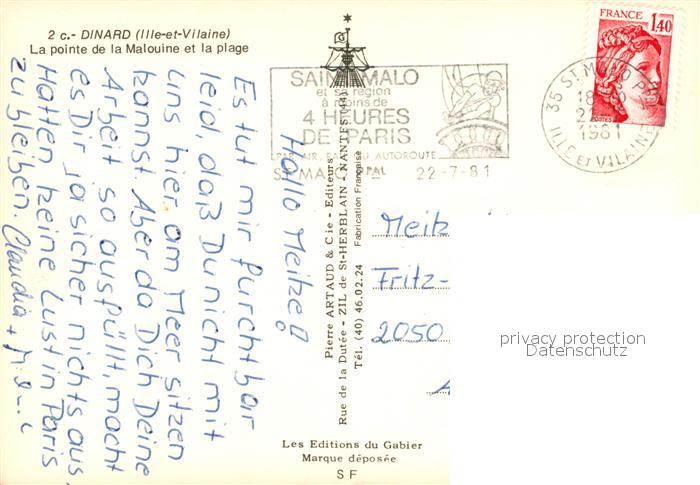 2 c.- DINARD (Ille-et-Vilaine)
La pointe de la Malouine et la plage
Hallo Meitze!
Es tut mir furchtbar
leid, daß Du nicht mit
uns hier am Meer sitzen
kannst. Aber da Dich Deine
Arbeit so ausfüllt, macht
es Dir ja sicher nichts aus,
Hatten keine Lust in Paris
zu bleiben. Claudia +
Pierre ARTAUD & Cie - Editeurs
Rue de la Dutée - ZIL de St-HERBLAIN - NANTES (44)
Tél. (40) 46.02.24 Fabrication Française
Les Editions du Gabier
Marque déposée
S F
SAINT MALO
et sa région
à moins de
4 HEURES
DE PARIS
PAR AIR, AUTOROUTE
ST MALO PAL 22-7-81
FRANCE
1,40
POSTES
35 ST MALO
18
1981
ILLE ET VILAINE
Meitz
Fritz-
2050
privacy protection
Datenschutz